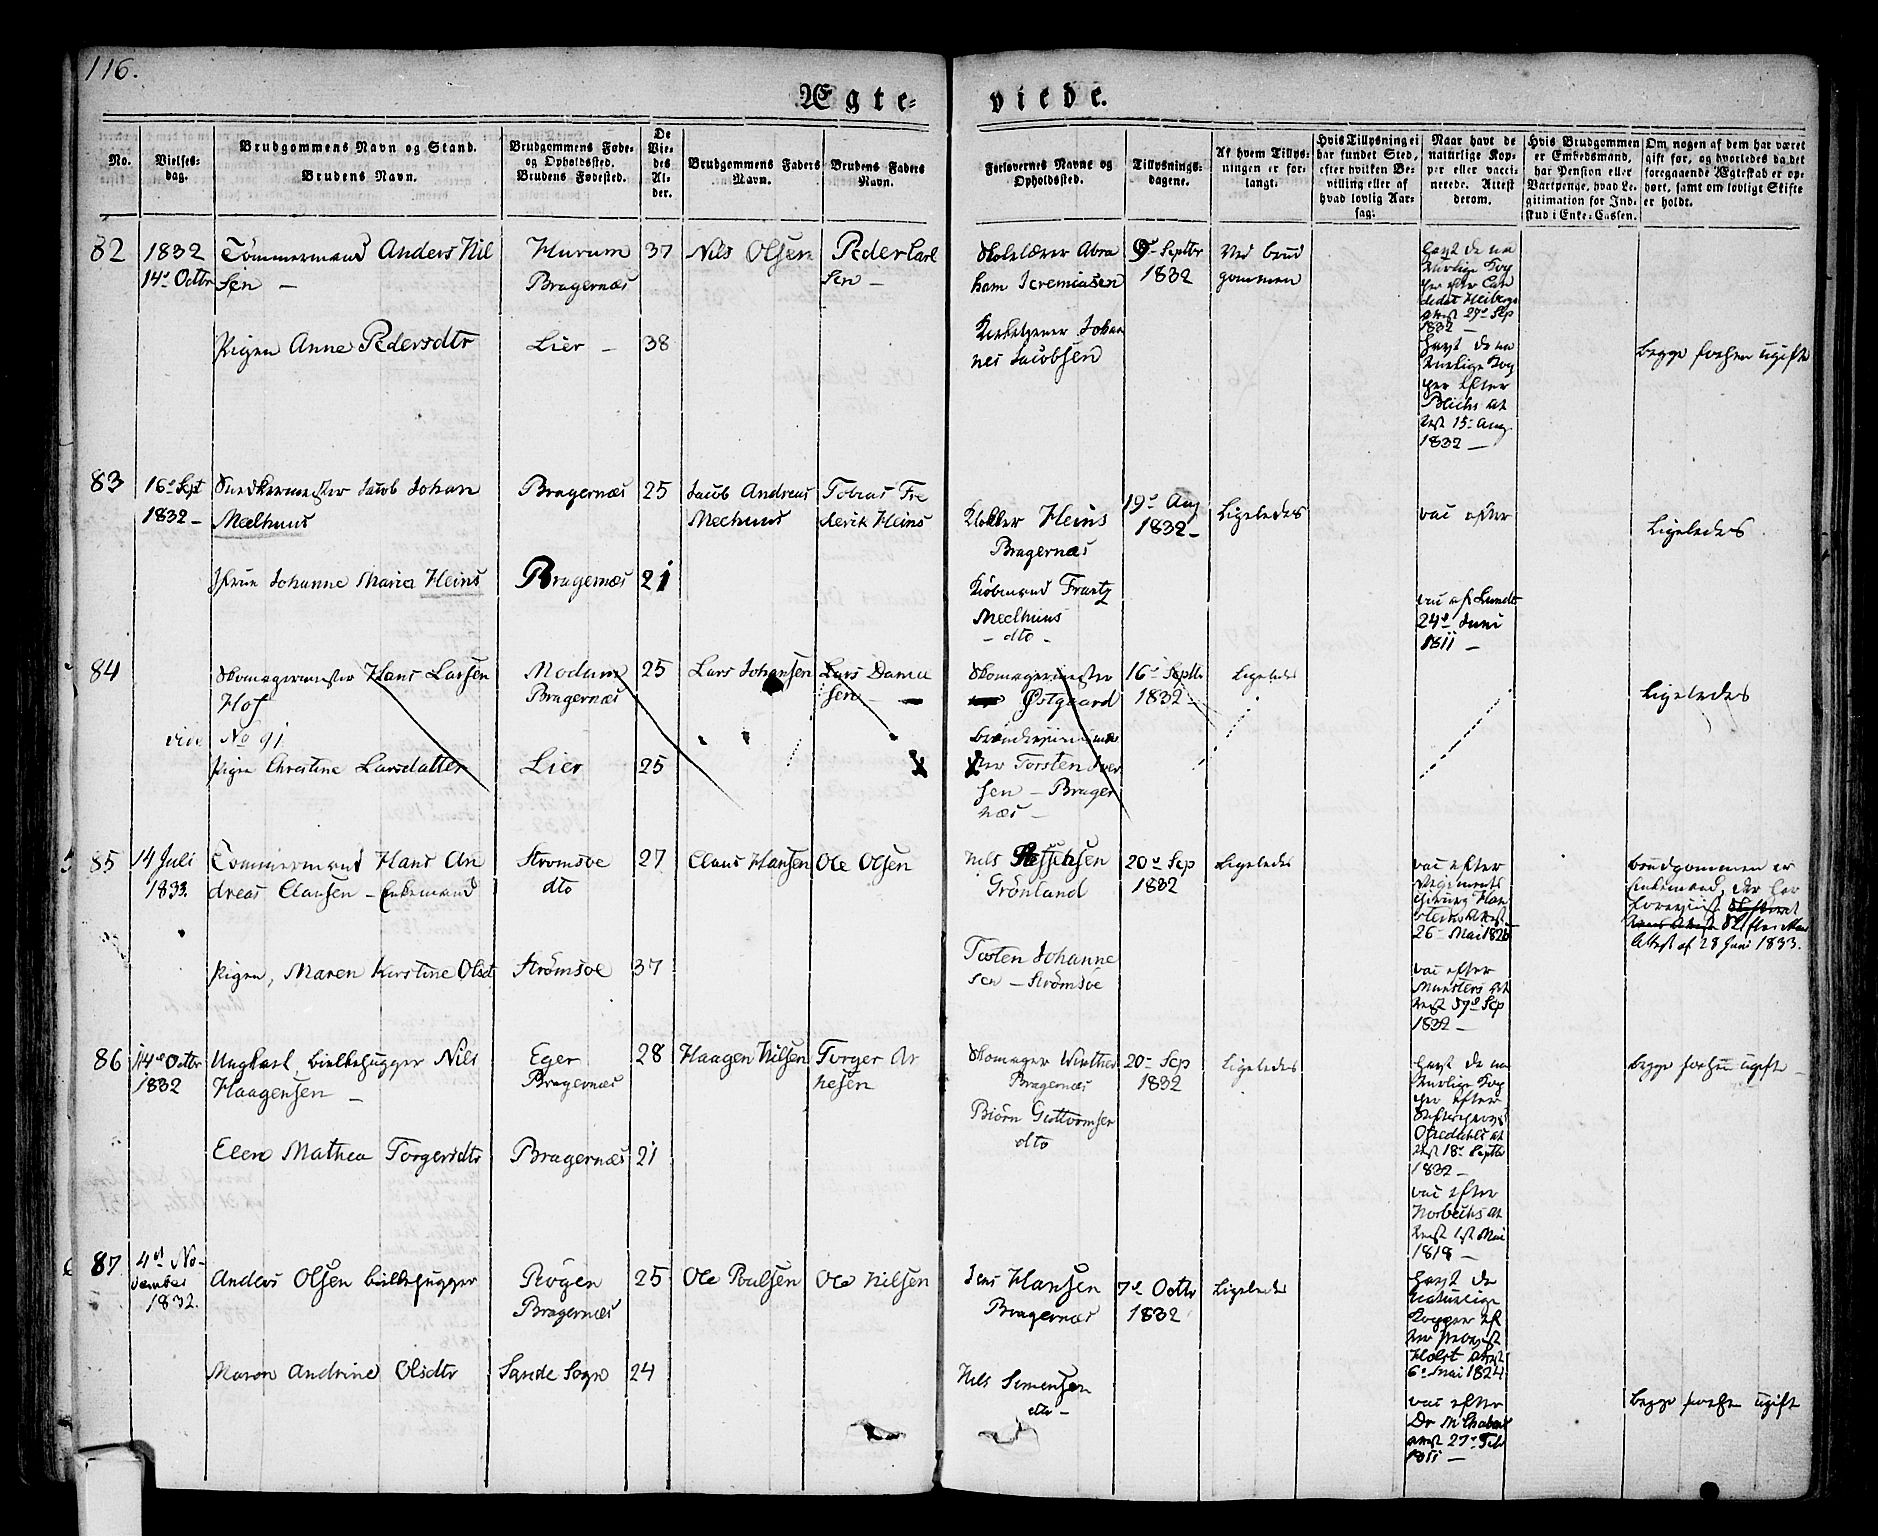 116.
Ægte-
viede.
No.
Vielses-
dag.
Brudgommens Navn og Stand.
Brudens Navn.
Brudgommens Føde-
og Opholdssted.
Brudens Fødested.
De
Vie-
des
Al-
der.
Brudgommens Faders
Navn.
Brudens Faders
Navn.
Forlovernes Navne og
Opholdssted.
Tillysnings-
dagene.
Af hvem Tillys-
ningen er for-
langt.
Hvis Tillysning ei
har fundet Sted,
efter hvilken Be-
villing eller af
hvad lovlig Aar-
sag.
Naar havt de
naturlige Kop-
per eller vacci-
nerede. Attest
derom.
Hvis Brudgommen
er Embedsmand,
har Pension eller
Vartpenge, hvad Le-
gitimation for Ind-
skud i Enke-Cassen.
Om nogen af dem har været
gift før, og hvorledes da det
foregaaende Ægteskab er op-
hørt, samt om lovligt Skifte
er holdt.
82
1832
14de Octbr
Tømmermand Anders Nil
sen —
Hurum
Bragernæs
37
Nils Olsen
Peder Carl
sen —
Skolelærer Abra
ham Jeremiasen
9 Septbr
1832
Ved Brud
gommen
havt de na
turlige Kop
per efter Can
didat Heibergs
Attest 27de Sep
1832 —
Pigen Anne Pedersdtr
Lier —
38
Kirketjener Johan
nes Jacobsen
havt de na
turlige Kop
per efter
Blichs At
test 15 Aug
1832 —
begge forhen ugifte
83
16de Sept
1832 —
Snedkermester Jacob Johan
Meehuus
Bragernæs
25
Jacob Andreas
Meehuus
Tobias Fre
derik Heins
Klokker Heins
Bragernæs
19de Aug
1832 —
Ligeledes
vac efter
Ligeledes
Jfrue Johanne Maria Heins
Bragernæs
21
Kiøbmand Frantz
Meehuus
— dto —
vac af Lundt
24de Juni
1811 —
84
Skomagermester Hans Larsen
Hof
Modum
Bragernæs
25
Lars Johansen
Lars Danie
sen —
Skomagermester
Østgaard
16de Septbr
1832 —
Ligeledes
Ligeledes
vide No 91
Pigen Christine Larsdatter
Lier
25
Torsten Iver
sen — Brager
næs —
85
14 Juli
1833.
Tømmermand Hans An
dreas Clausen — Enkemand
Strømsøe
dto
27
Claus Hansen
Ole Olsen
Nils Steffensen
Grønland
20de Sep
1832
Ligeledes
vac efter
Regiments
chirurg Han
stens Attest
26 Mai 1825
brudgommen er
Enkemand, der har
Attest af 28 Juni 1833.
Pigen, Maren Kirstine Olsdt
Strømsøe
37
Torsten Johanne
sen — Strømsøe
vac efter
Munsters At
test
1832 —
86
14de Octbr
1832
Ungkarl, bielkehugger Nils
Haagensen —
Eger
Bragernæs
28
Haagen Nilsen
Torger Ar
nesen
Skomager Winther
Bragernæs
20 Sep
1832
Ligeledes
havt de na
turlige Kop
per efter
Ofredahls At
test 18de Septbr
1832 —
begge forhen ugifte —
Elen Mathea Torgersdtr
Bragernæs
21
Biørn Guttormsen
dto
vac efter
Norbechs At
test 1ste Mai
1818 —
87
4de No-
vember
1832.
Anders Olsen bielkehugger
Røgen
Bragernæs
25
Ole Poulsen
Ole Nilsen
Jens Hansen
Bragernæs
7de Octbr
1832
Ligeledes
havt de
naturlige
Kopper ef
ter Provst
Holst Attest
6te Mai 1824
Maren Andrine Olsdtr
Sande Sogn
24
Nils Simensen
dto —
vac efter
Dr
Attest 27de Feb
1811 —
begge forhen ugift